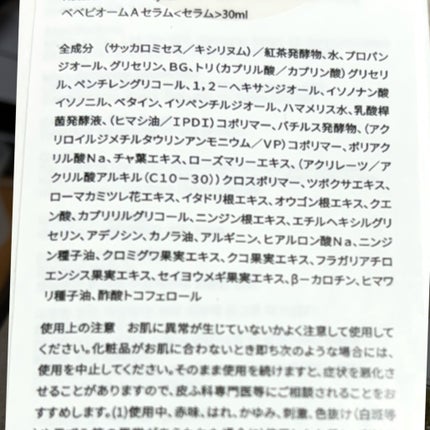 ベベビオームAセラム<セラム>30ml
全成分 (サッカロミセス/キシリヌム)/紅茶発酵物、水、プロパン
ジオール、グリセリン、BG、トリ(カプリル酸/カプリン酸)グリセリ
ル、ペンチレングリコール、1,2-ヘキサンジオール、イソノナン酸
イソノニル、ベタイン、イソペンチルジオール、ハマメリス水、乳酸桿
菌発酵液、(ヒマシ油/IPDI)コポリマー、バチルス発酵物、(アク
リロイルジメチルタウリンアンモニウム/VP)コポリマー、ポリアク
リル酸Na、チャ葉エキス、ローズマリーエキス、(アクリレーツ/ア
クリル酸アルキル(C10-30))クロスポリマー、ツボクサエキス、
ローマカミツレ花エキス、イタドリ根エキス、オウゴン根エキス、クエ
ン酸、カプリリルグリコール、ニンジン根エキス、エチルヘキシルグリ
セリン、アデノシン、カノラ油、アルギニン、ヒアルロン酸Na、ニンジ
ン種子油、クロミグワ果実エキス、クコ果実エキス、フラガリアチロ
エンシス果実エキス、セイヨウメギ果実エキス、β-カロチン、ヒマワ
リ種子油、酢酸トコフェロール
使用上の注意 お肌に異常が生じていないかよく注意して使用して
ください。化粧品がお肌に合わないとき即ち次のような場合には、
使用を中止してください。そのまま使用を続けますと、症状を悪化さ
せることがありますので、皮ふ科専門医等にご相談されることをお
すすめします。(1)使用中、赤味、はれ、かゆみ、刺激、色抜け(白斑等